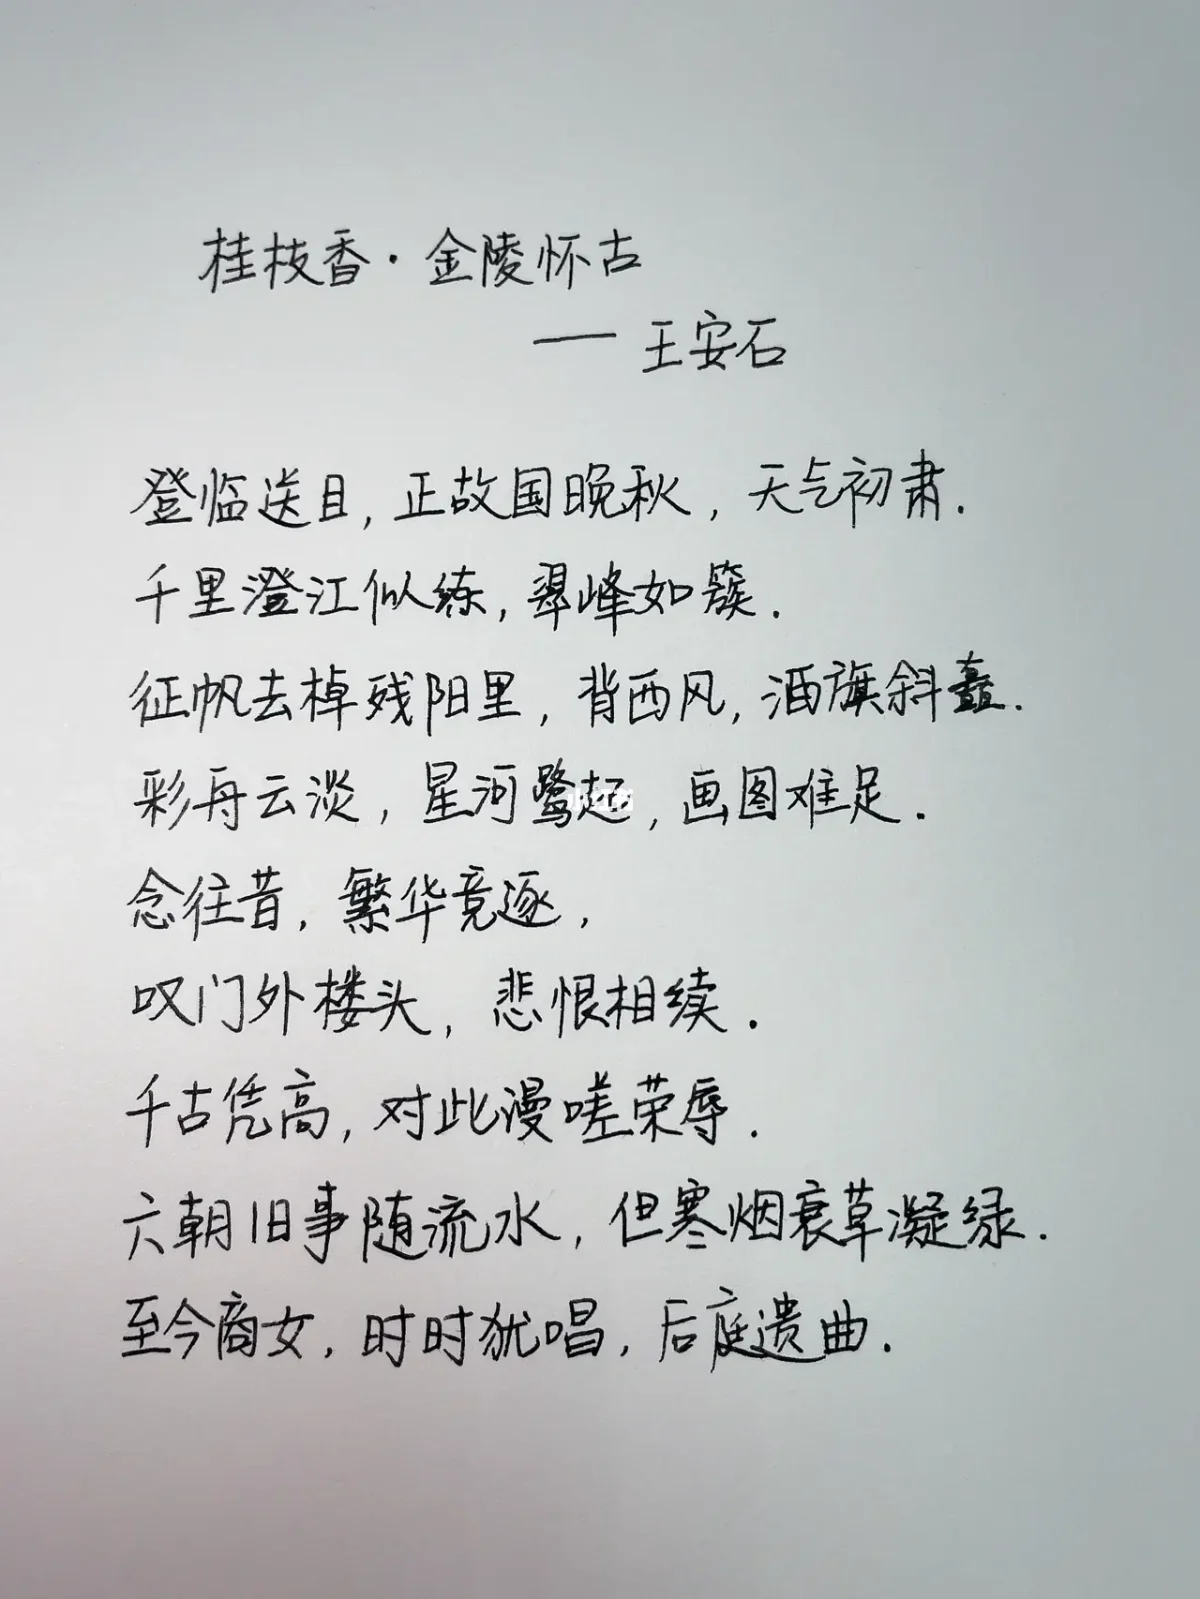 桂枝香·金陵怀古
—— 王安石
登临送目,正故国晚秋,天气初肃.
千里澄江似练,翠峰如簇.
征帆去棹残阳里,背西风,酒旗斜矗.
彩舟云淡,星河鹭起,画图难足.
念往昔,繁华竞逐,
叹门外楼头,悲恨相续.
千古凭高,对此漫嗟荣辱.
六朝旧事随流水,但寒烟衰草凝绿.
至今商女,时时犹唱,后庭遗曲.
小红书